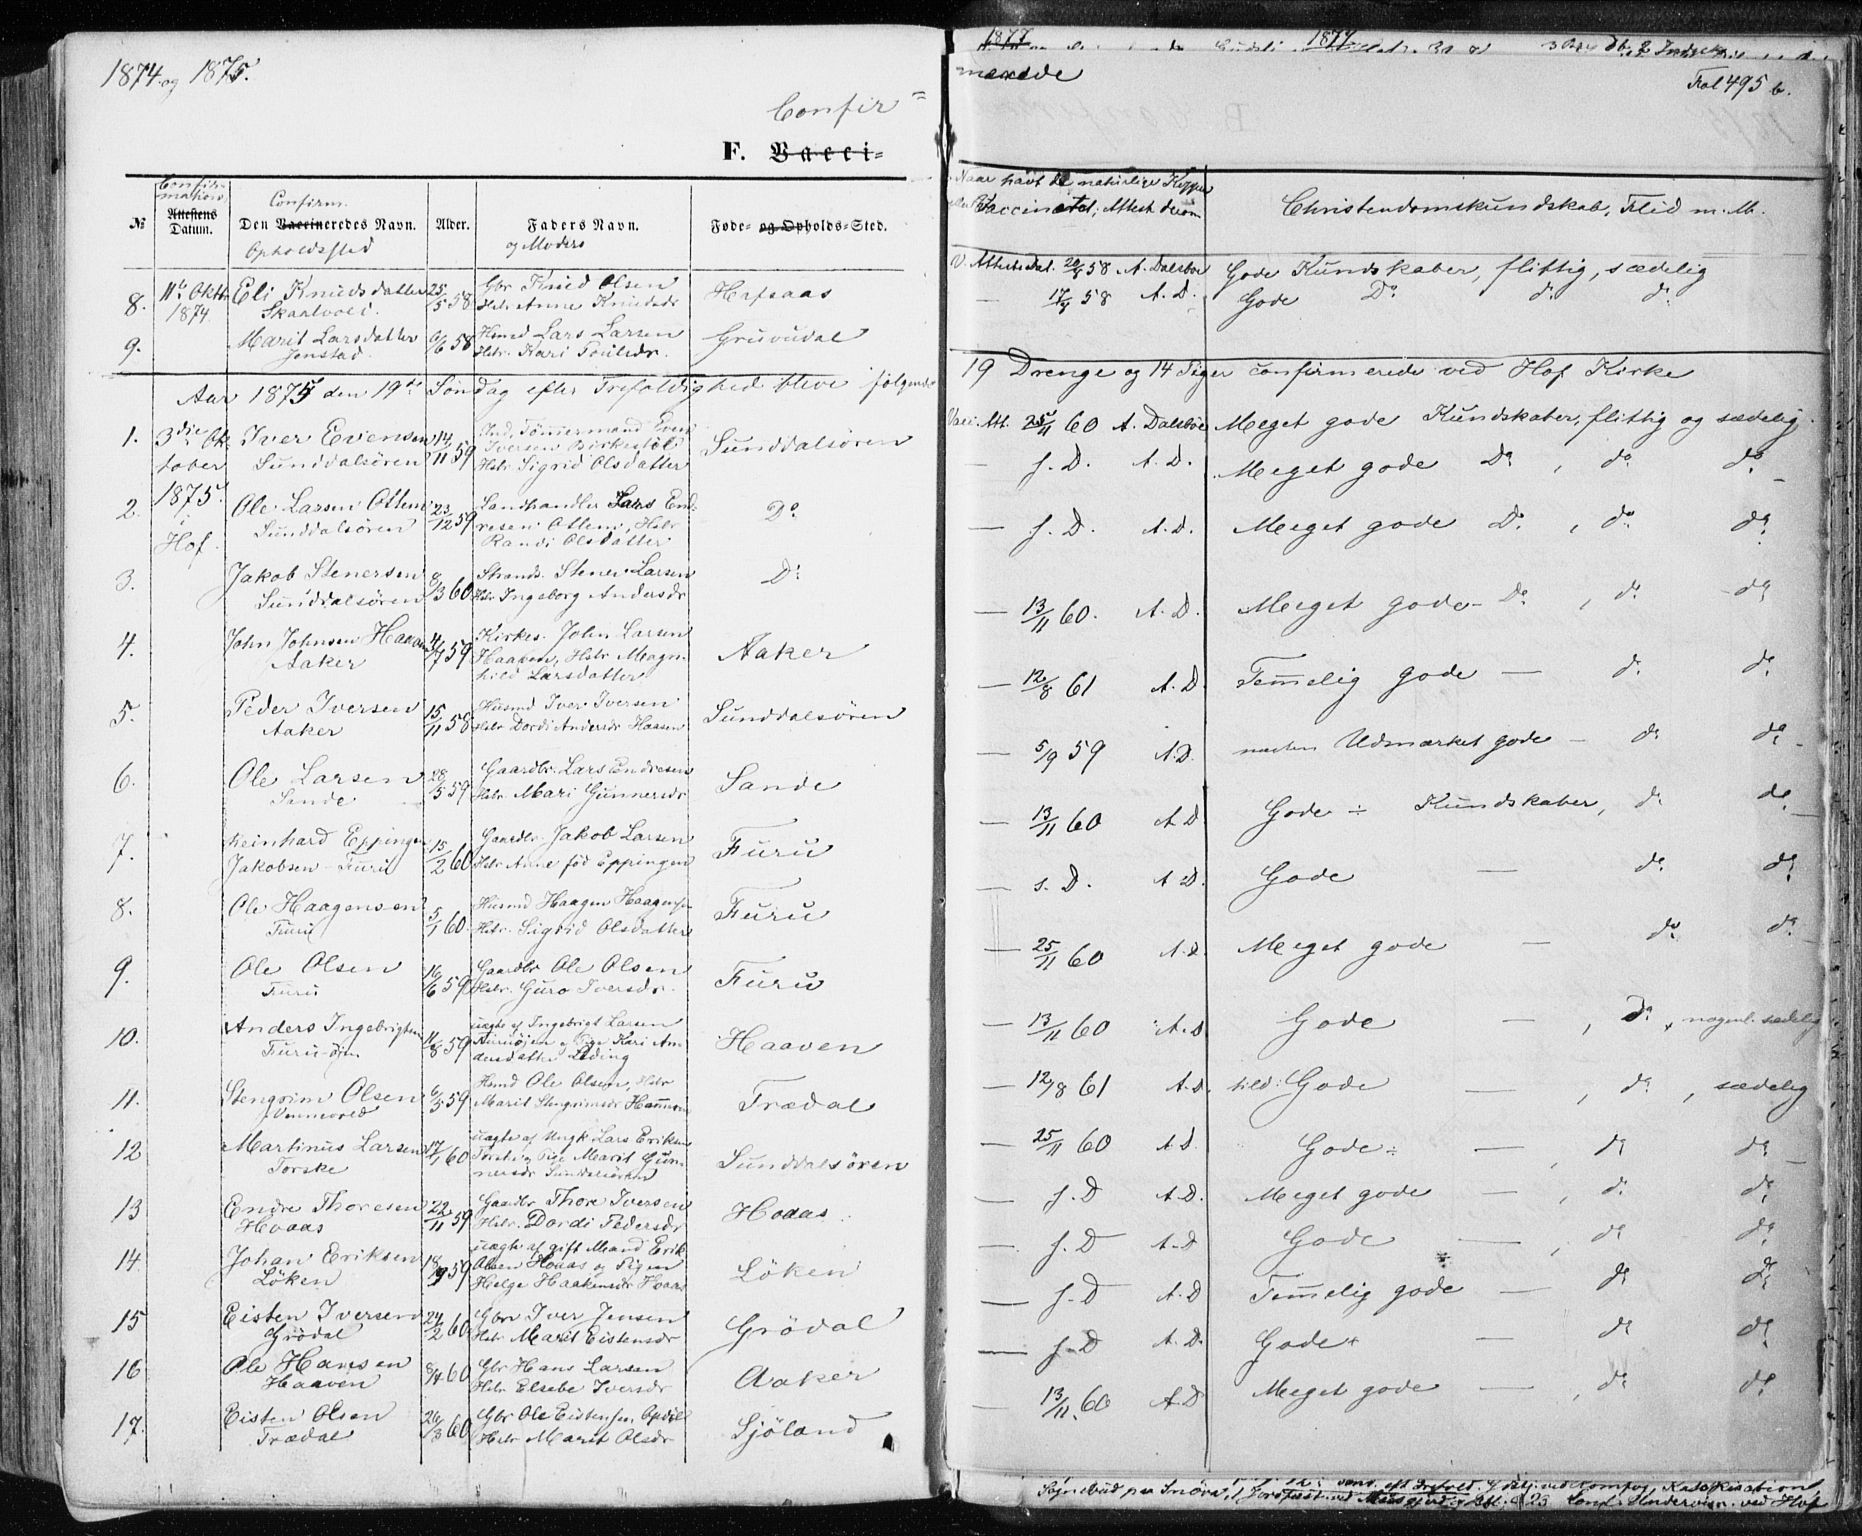 1874 og 1875.
Confir=
F. Vacci=
Confir-
mations
Attestens
Datum.
№
Confirm.
Den Vaccineredes Navn.
Opholdssted
Alder.
Faders Navn.
og Moders
Føde- og Opholds-Sted.
8. 11te Oktb. 1874 Eli Knudsdatter 25/5 58 Gbr Knud Olsen Hafsaas
Hstr. Anne Knudsdr
9. Marit Larsdatter 6/6 58 Husmd Lars Larsen Gruvudal
Jenstad Hstr. Kari
Aar 1875 den 19de Søndag efter Trefoldighed bleve følgende
1. 3die Ok- Iver Evensen 14/11 59 Ind. Tömmermand Even Sunddalsören
tober Sunddalsören Iversen
Hstr Sigrid Olsdatter
2. 1875 Ole Larsen Ottem 23/12 59 Landhandler Lars End- Do
i Sunddalsören resen Ottem, Hstr
Hof. Randi Olsdatter
3. Jakob Stenersen 8/3 60 Strands. Stener Larsen Do
Sunddalsören Hstr Ingeborg Andersdr
4. John Johnsen Haaven 4/7 59 Kirkes. John Larsen Aaker
Aaker Haaven, Hstr Magn-
hild Larsdatter
5. Peder Iversen 15/11 58 Husmd Iver Iversen Sunddalsören
Aaker Hstr Dordi Andersdr Haasen
6. Ole Larsen 28/5 59 Gaardbr. Lars Endresen Sande
Sande Hstr. Mari Gunnersdr
7. Reinhard Eppingen 15/2 60 Gaardbr Jakob Larsen Furu
Jakobsen - Furu Hstr Anne föd Eppingen
8. Ole Haagensen 5/1 60 Husmd Haagen Haagensen Furu
Furu Hstr. Sigrid Olsdatter
9. Ole Olsen 16/6 59 Gaardbr Ole Olsen Furu
Furu Hstr. Guro Iversdr.
10. Anders Ingebrigtsen 11/8 59 uægte af Ingebrigt Larsen Haaven
Furu-öjen Furuöjen og Pige Kari An-
dersdatter
11. Stengrim Olsen 6/5 59 Hsmd Ole Olsen, Hstr Trædal
Marit Stengrimsdr
12 Martinus Larsen 17/1 60 uægte af Ungk Lars Eriksen Sunddalsören
Torske Torske og Pige Marit Gun-
nersdr Sunddalsören
13 Endre Thoresen 22/11 59 Gaardbr Thore Iversen Hoaas
Hoaas Hstr. Dordi Pedersdr
14. Johan Eriksen 18/9 59 uægte af gift Mand Erik Löken
Löken Olsen Hoaas og Pigen
Helge Haakensdr Hoaas
15 Eisten Iversen 24/2 60 Gbr Iver Jensen Grödal
Grödal Hstr Marit Eistensdr
16 Ole Hansen 8/4 60 Gbr Hans Larsen Aaker
Haaven Hstr Elsebe Iversdr
17. Eisten Olsen 26/3 60 Gbr Ole Eistensen Sjöland
Trædal Hstr Marit Olsdr
1877 1877
merede
Fol 495 b.
Naar havt de naturlige Kopper
eller Vaccineret, Attest derom
Christendomskundskab, Flid m. M.
V. Attest Dat. 20/8 58 A. Dalsboe Gode Kundskaber, flittig, sædelig
— 17/9 58 A. D. Gode Do do do
19 Drenge og 14 Piger confirmerede ved Hof Kirke
Vacc. Att. 25/11 60 A. Dalsboe Meget gode Kundskaber, flittig og sædelig.
— s. D. A. D. Meget gode Do, do do
— s. D. A. D. Meget gode Do, do do
— 13/11 60. A. D. Meget gode Do, do do
— 12/8 61 A. D. Temmelig gode — do do
— 5/9 59 A. D. næsten Udmærket gode — do do
— 13/11 60 A. D Gode ÷ Kundskaber, do do
— s. D. A. D. Gode — do do
— 25/11 60 A. D. Meget gode — do do
— 13/11 60 A. D Gode —, do, nogenl. sædelig
— 12/8 61 A. D. Gode —, do, sædelig
— 25/11 60 A. D. Gode ÷ —, do do
— s. D A. D. Meget gode —, do do
— s. D A. D Gode —, do do
— s. D A. D Temmelig gode — do do
— s. D A. D. Gode + — do do
— 13/11 60 A. D. Meget gode —, do do